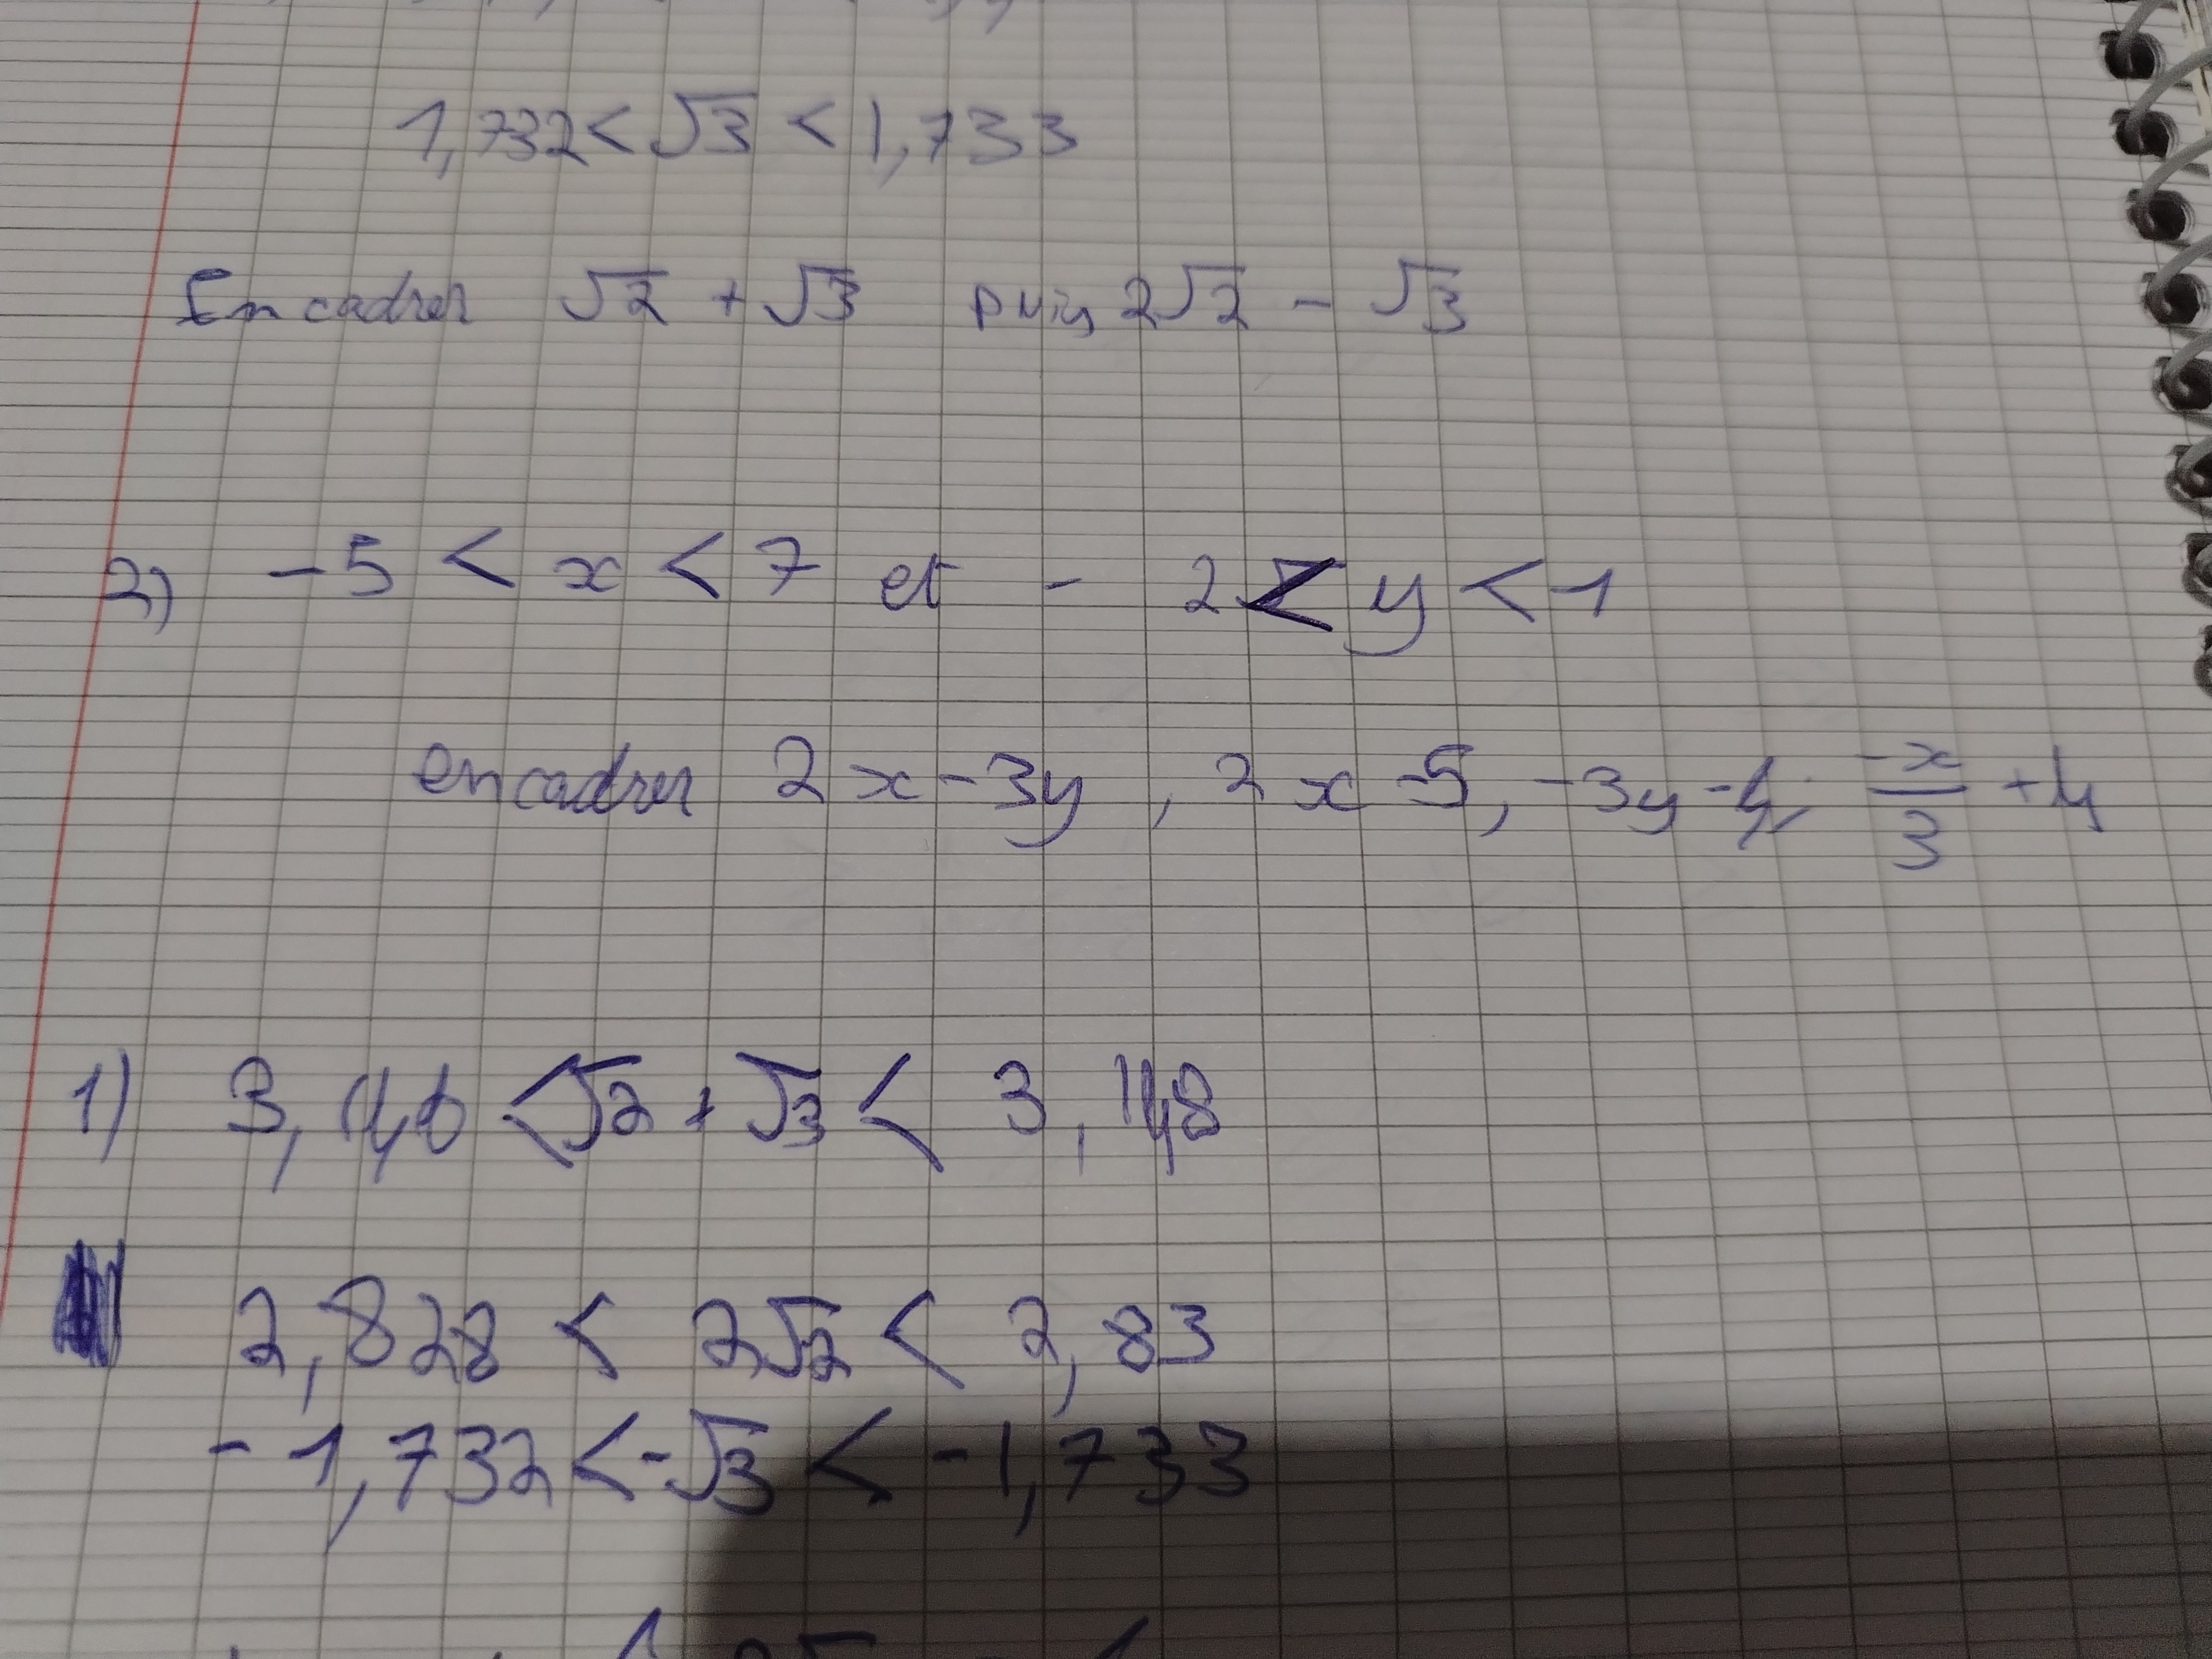 1,732 < √3 < 1,733
Encadrer √2 + √3 puis 2√2 - √3
2) -5 < x < 7 et - 2 < y < 1
encadrer 2x - 3y, 2x - 5, -3y - 4, -x/3 + 4
1) 3,146 < √2 + √3 < 3,148
2,828 < 2√2 < 2,83
-1,732 < -√3 < -1,733